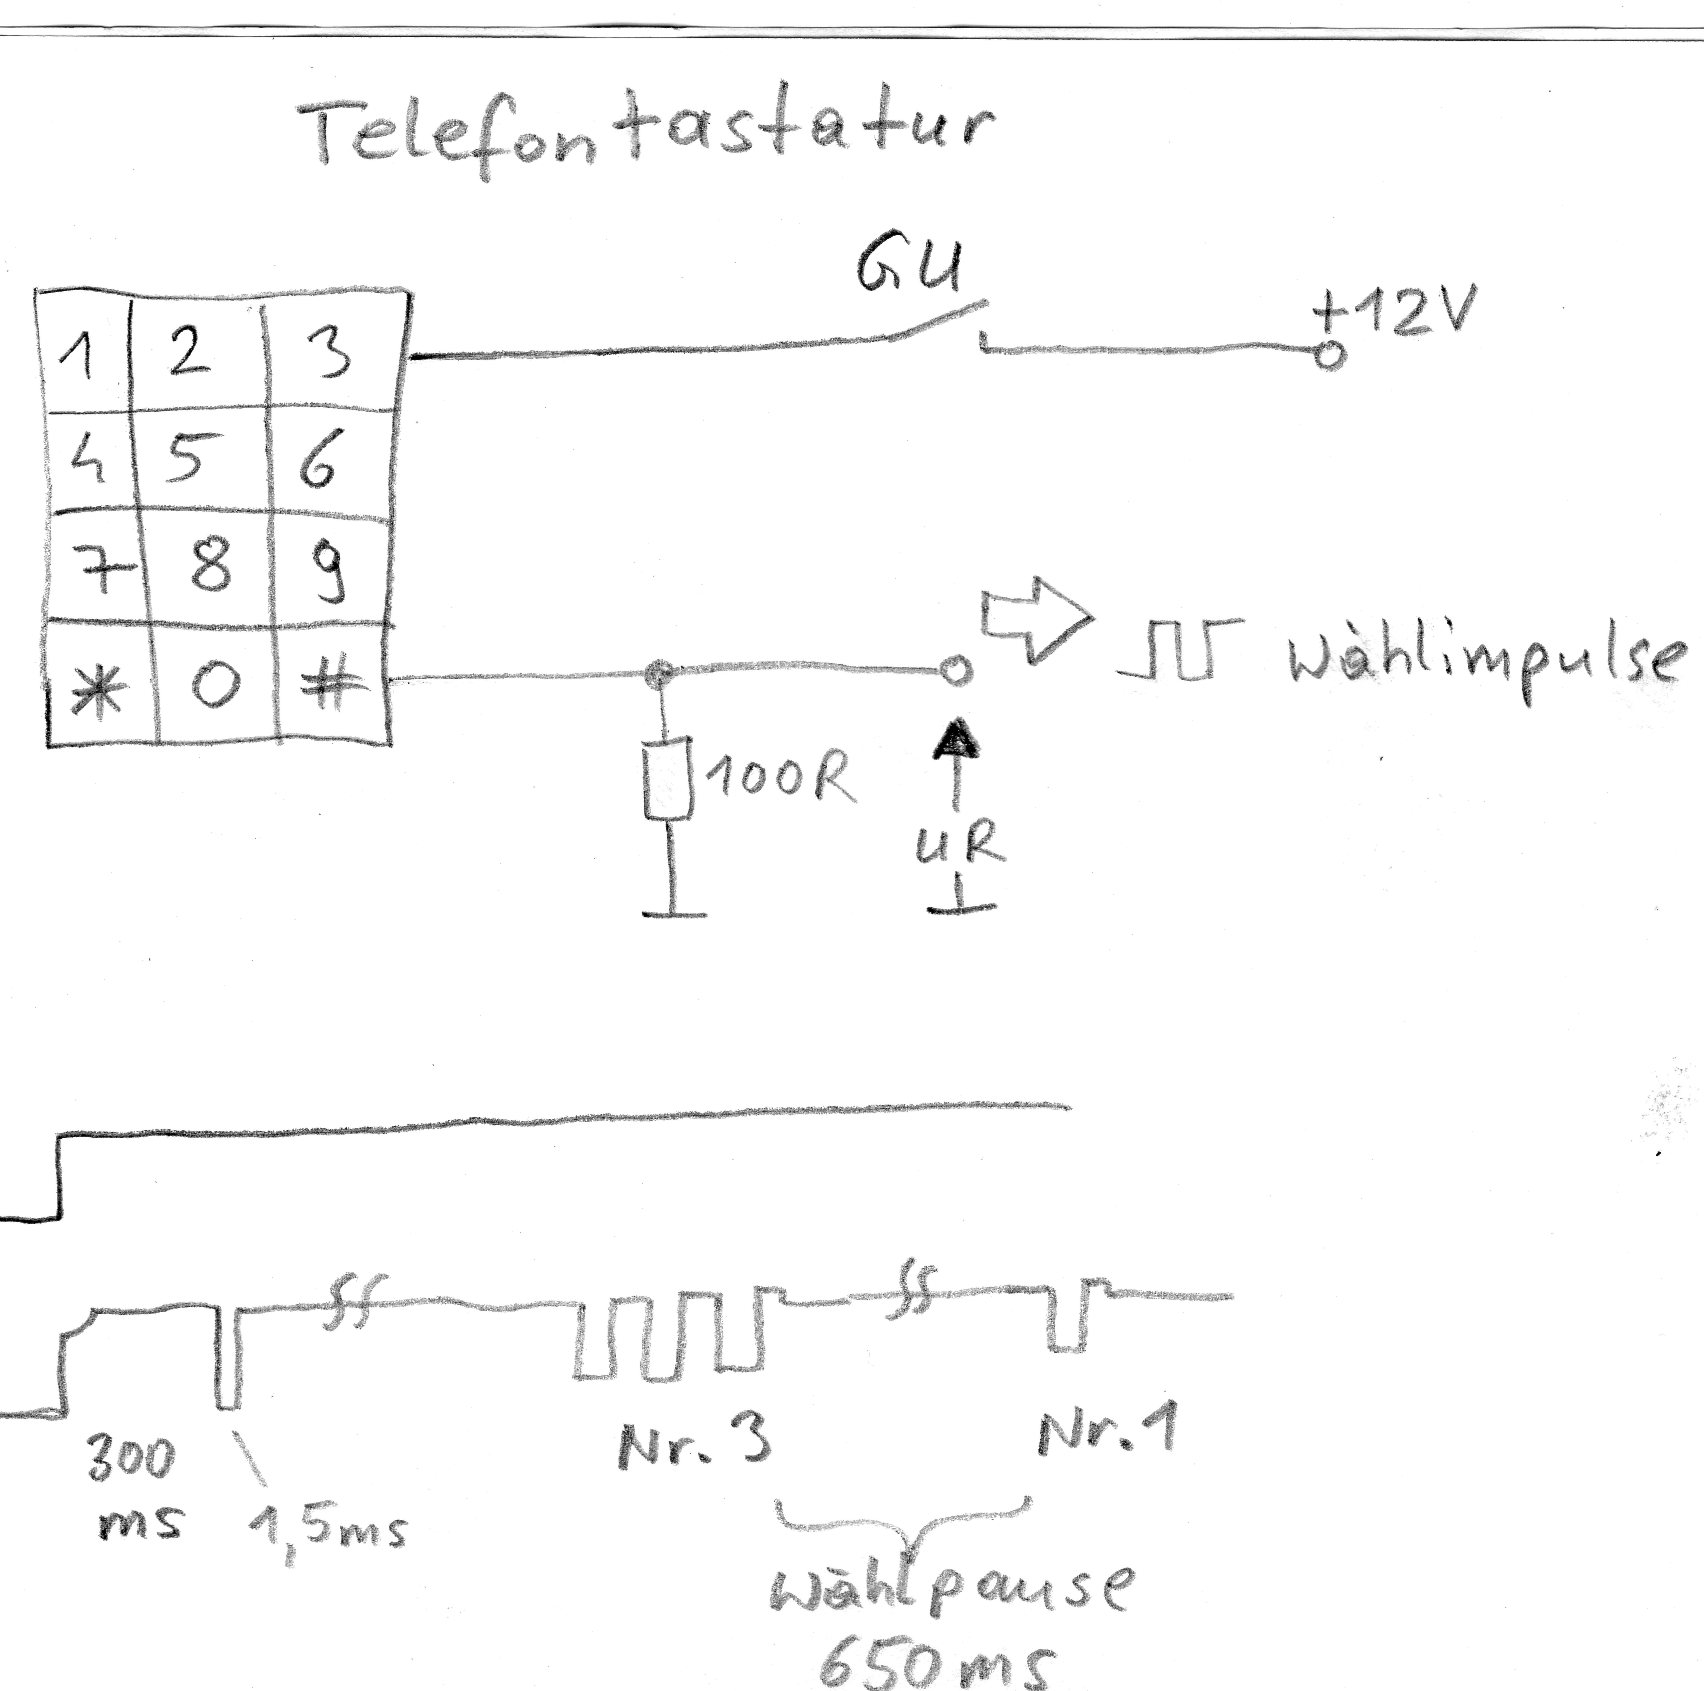 Telefontastatur
GU
+12V
1 2 3
4 5 6
7 8 9
* 0 #
Wählimpulse
100R
UR
300
ms
1,5ms
Nr. 3
Nr. 1
Wählpause
650ms